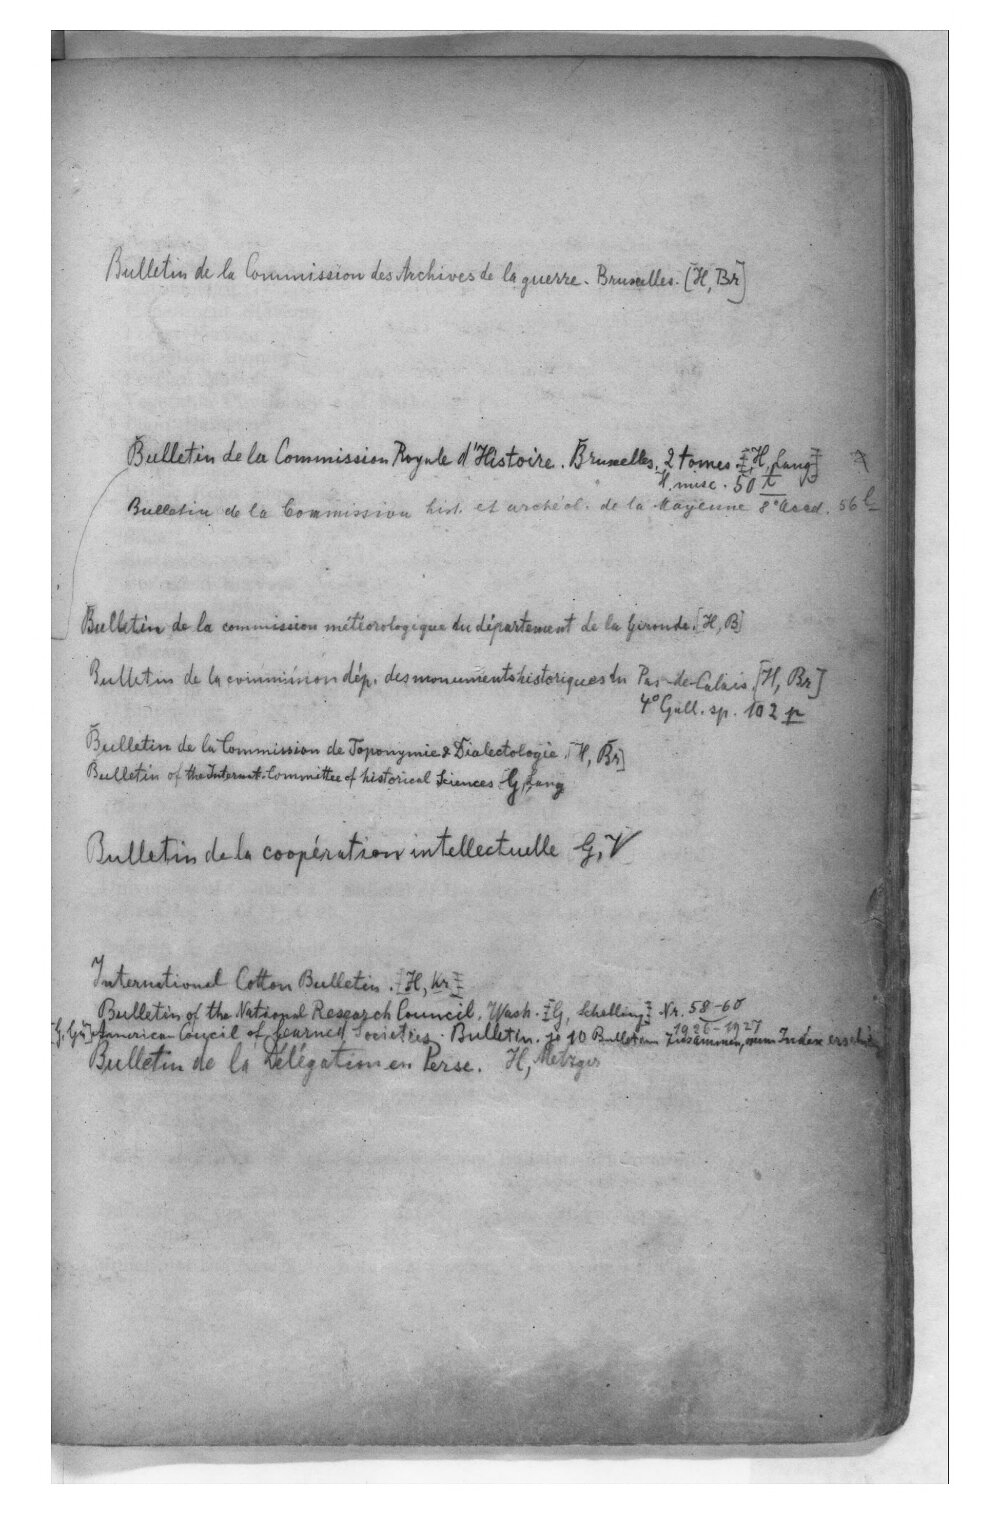 Bulletin de la Commission des Archives de la guerre. Bruxelles. [H, Br]
Bulletin de la Commission Royale d'Histoire. Bruxelles, 2 tomes. [H, Lang]
H. misc. 50 t
Bulletin de la Commission hist. et archéol. de la Mayenne 8° Acad. 56 l
Bulletin de la commission météorologique du département de la Gironde. [H, B]
Bulletin de la commission dép. des monuments historiques du Pas-de-Calais. [H, Br]
4° Gall. sp. 102 p
Bulletin de la Commission de Toponymie & Dialectologie. [H, Br]
Bulletin of the Internat. Committee of historical Sciences G, Lang
Bulletin de la coopération intellectuelle G, V
International Cotton Bulletin. [H, Kr]
Bulletin of the National Research Council. Wash. [G, Schelling] Nr. 58-60
1926-1927
[G, Gü] American Council of Learned Societies. Bulletin. je 10 Bulletins zusammen, wenn Index
Bulletin de la Délégation en Perse. H, Metzger